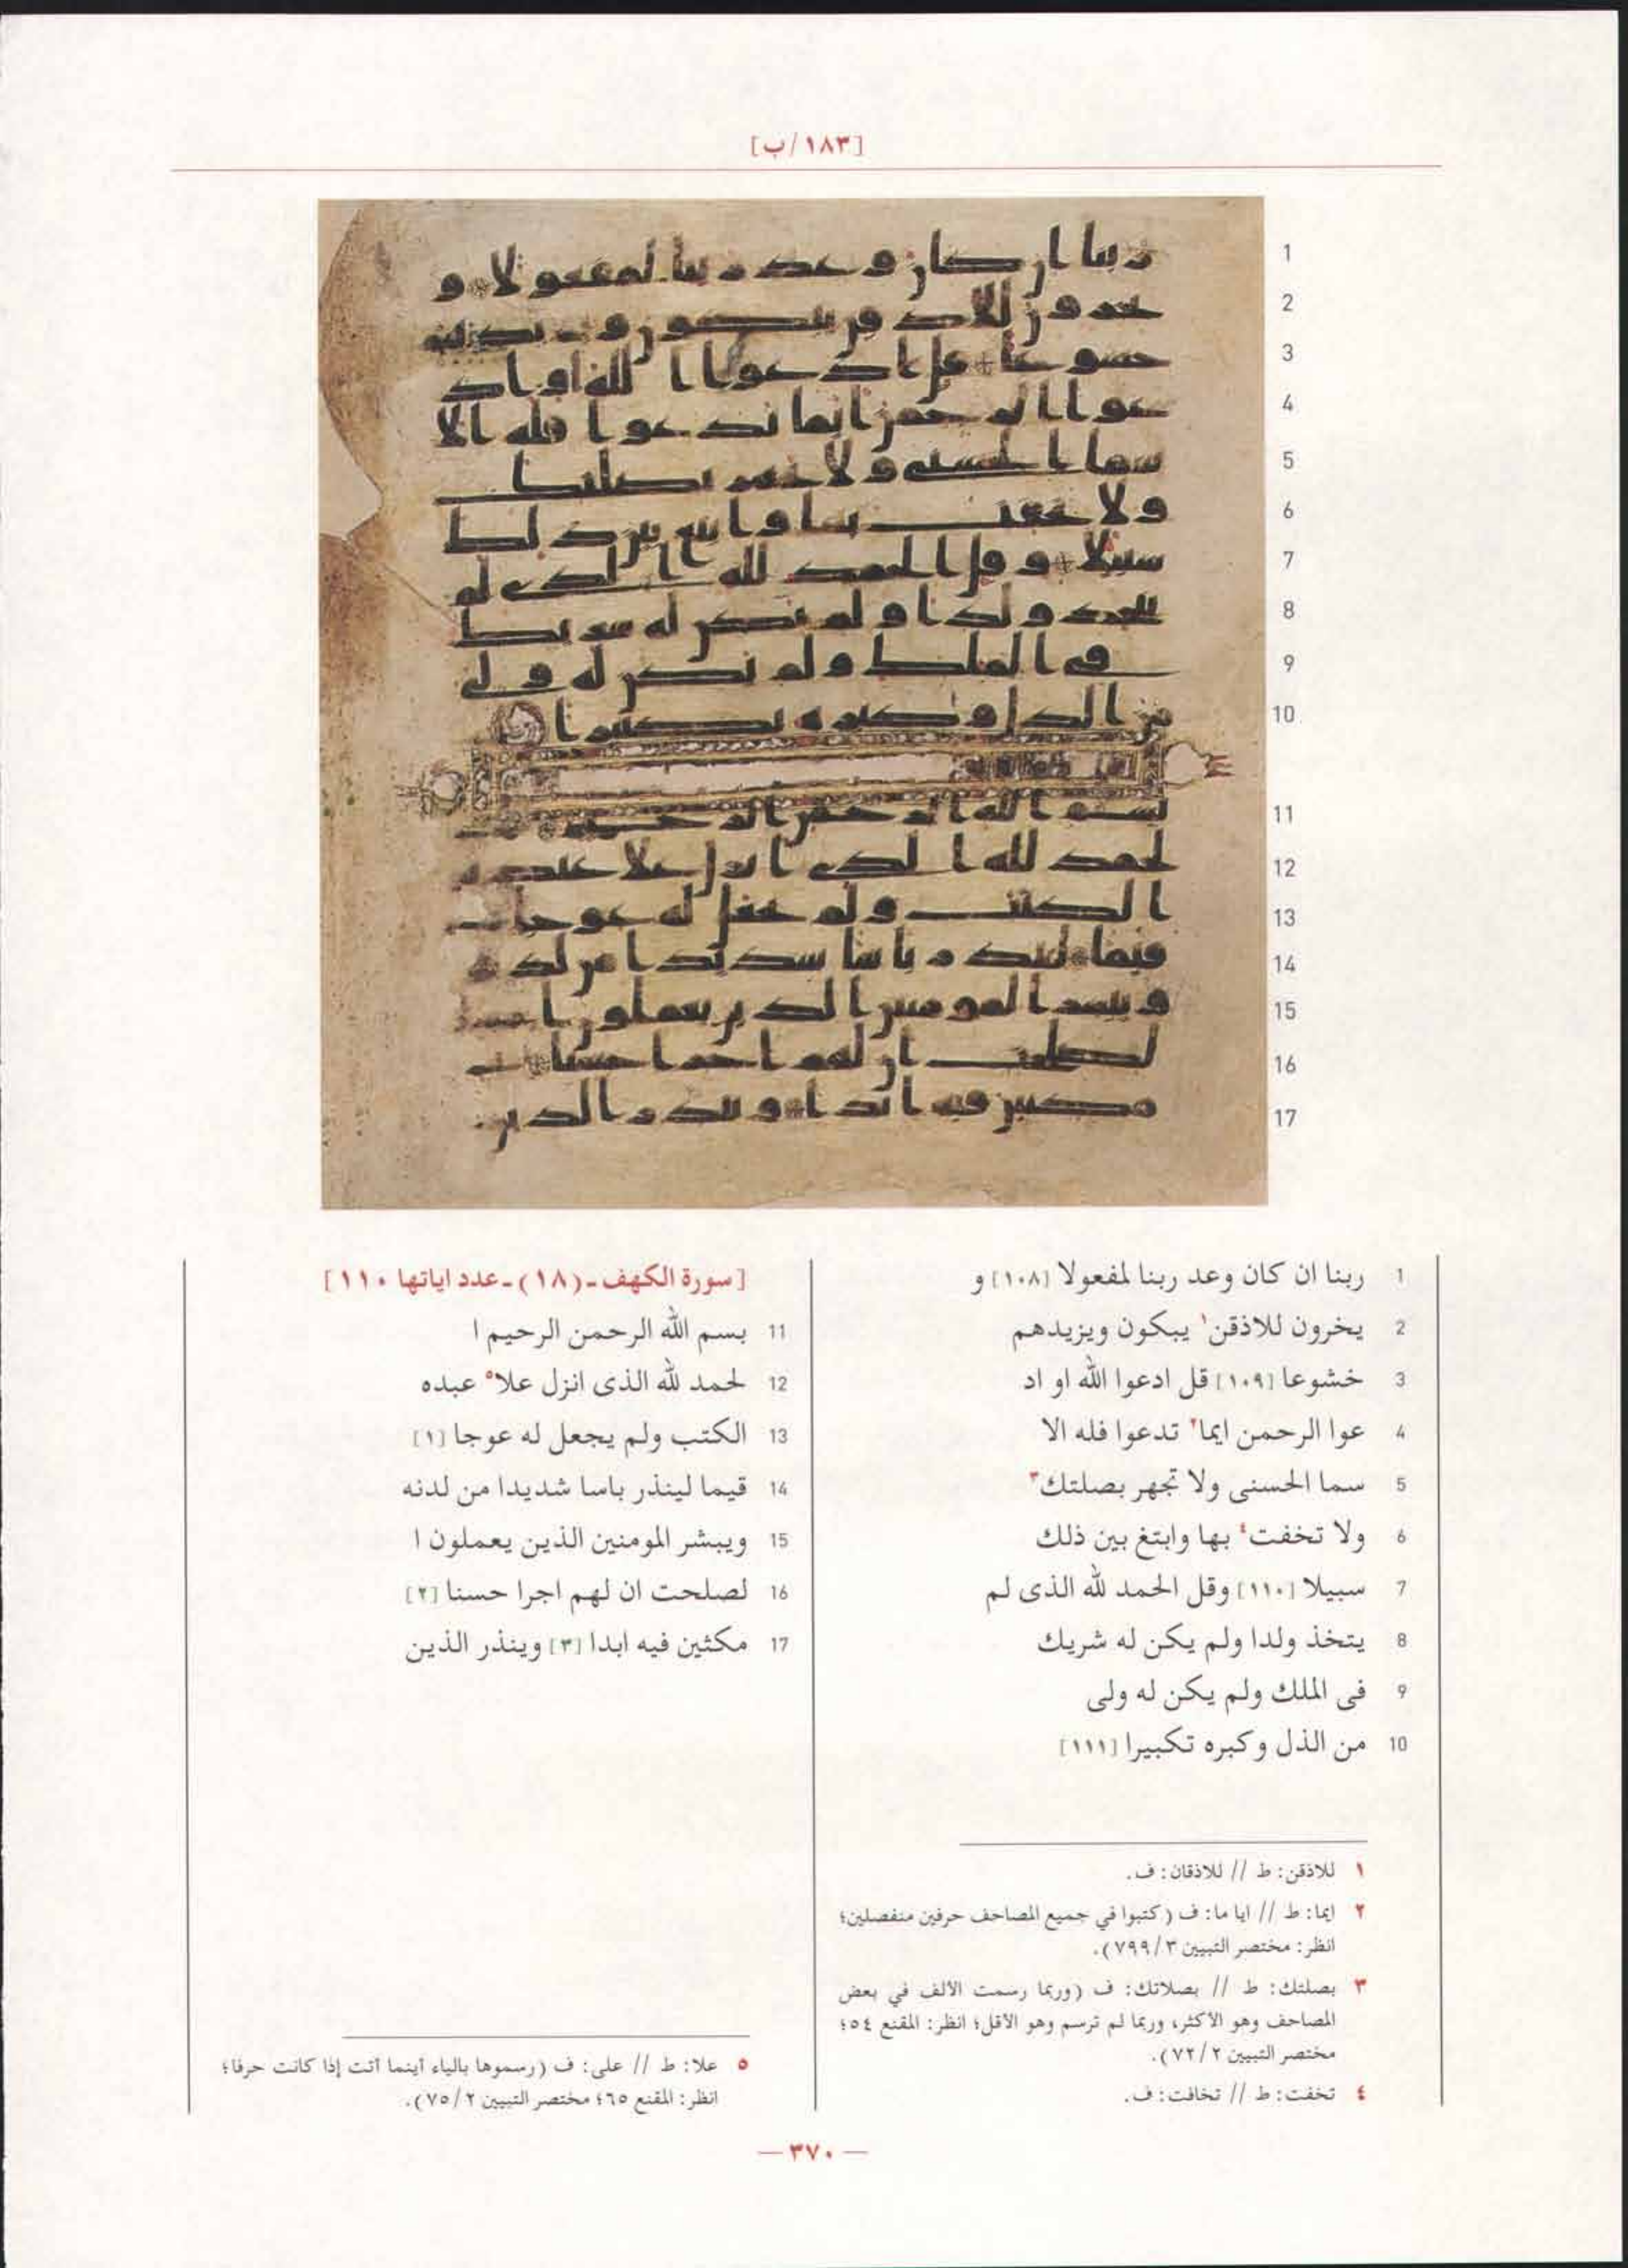 [١٨٣/ب]
1
2
3
4
5
6
7
8
9
10
11
12
13
14
15
16
17
1 ربنا ان كان وعد ربنا لمفعولا [١٠٨] و
2 يخرون للاذقن١ يبكون ويزيدهم
3 خشوعا [١٠٩] قل ادعوا الله او اد
4 عوا الرحمن ايما٢ تدعوا فله الا
5 سما الحسنى ولا تجهر بصلتك٣
6 ولا تخفت٤ بها وابتغ بين ذلك
7 سبيلا [١١٠] وقل الحمد لله الذى لم
8 يتخذ ولدا ولم يكن له شريك
9 فى الملك ولم يكن له ولى
10 من الذل وكبره تكبيرا [١١١]
١ للاذقن: ط // للاذقان: ف.
٢ ايما: ط // ايا ما: ف (كتبوا في جميع المصاحف حرفين منفصلين؛
انظر: مختصر التبيين ٣/٧٩٩).
٣ بصلتك: ط // بصلاتك: ف (وربما رسمت الألف في بعض
المصاحف وهو الأكثر، وربما لم ترسم وهو الأقل؛ انظر: المقنع ٥٤؛
مختصر التبيين ٢/٧٢).
٤ تخفت: ط // تخافت: ف.
[سورة الكهف-(١٨)-عدد اياتها ١١٠]
11 بسم الله الرحمن الرحيم ا
12 لحمد لله الذى انزل علا٥ عبده
13 الكتب ولم يجعل له عوجا [١]
14 قيما لينذر باسا شديدا من لدنه
15 ويبشر المومنين الذين يعملون ا
16 لصلحت ان لهم اجرا حسنا [٢]
17 مكثين فيه ابدا [٣] وينذر الذين
٥ علا: ط // على: ف (رسموها بالياء أينما أتت إذا كانت حرفا؛
انظر: المقنع ٦٥؛ مختصر التبيين ٢/٧٥).
— ٣٧٠ —